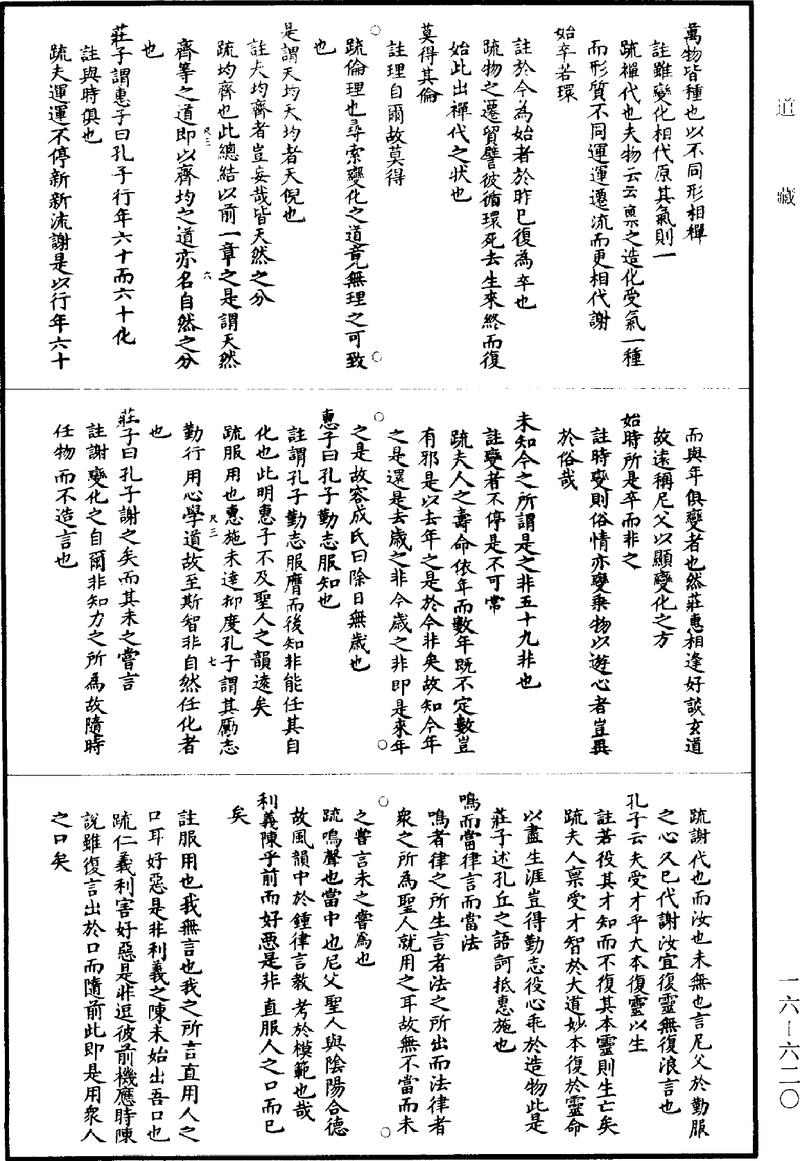 道藏
萬物皆種也以不同形相禪
註雖變化相代原其氣則一
疏禪代也夫物云云稟之造化受氣一種
而形質不同運運遷流而更相代謝
始卒若環
註於今為始者於昨已復為卒也
疏物之遷貿譬彼循環死去生來終而復
始此出禪代之狀也
莫得其倫
註理自爾故莫得
疏倫理也尋索變化之道竟無理之可致
也
是謂天均天均者天倪也
註夫均齊者豈妄哉皆天然之分
疏均齊也此總結以前一章之是謂天然
齊等之道即以齊均之道亦名自然之分
尺三 六
也
莊子謂惠子曰孔子行年六十而六十化
註與時俱也
疏夫運運不停新新流謝是以行年六十
而與年俱變者也然莊惠相逢好談玄道
故遠稱尼父以顯變化之方
始時所是卒而非之
註時變則俗情亦變乘物以遊心者豈異
於俗哉
未知今之所謂是之非五十九非也
註變者不停是不可常
疏夫人之壽命依年而數年既不定數豈
有邪是以去年之是於今非矣故知今年
之是還是去歲之非今歲之非即是來年
之是故容成氏曰除日無歲也
惠子曰孔子勤志服知也
註謂孔子勤志服膺而後知非能任其自
化也此明惠子不及聖人之韻遠矣
疏服用也惠施未達抑度孔子謂其勵志
尺三 七
勤行用心學道故至斯智非自然任化者
也
莊子曰孔子謝之矣而其未之嘗言
註謝變化之自爾非知力之所為故隨時
任物而不造言也
疏謝代也而汝也未無也言尼父於勤服
之心久已代謝汝宜復靈無復浪言也
孔子云夫受才乎大本復靈以生
註若役其才知而不復其本靈則生亡矣
疏夫人稟受才智於大道妙本復於靈命
以盡生涯豈得勤志役心乖於造物此是
莊子述孔丘之語訶抵惠施也
鳴而當律言而當法
鳴者律之所生言者法之所出而法律者
衆之所為聖人就用之耳故無不當而未
之嘗言未之嘗為也
疏鳴聲也當中也尼父聖人與陰陽合德
故風韻中於鍾律言教考於模範也哉
利義陳乎前而好惡是非直服人之口而已
矣
註服用也我無言也我之所言直用人之
口耳好惡是非利義之陳未始出吾口也
疏仁義利害好惡是非逗彼前機應時陳
說雖復言出於口而隨前此即是用衆人
之口矣
一六—六二〇